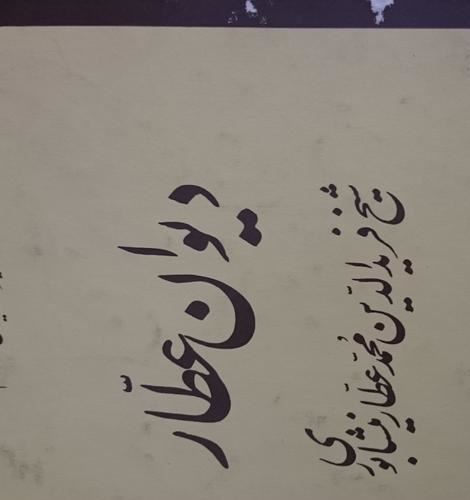 دیوان عطّار
شیخ فریدالدّین محمّد عطّار نیشابوری